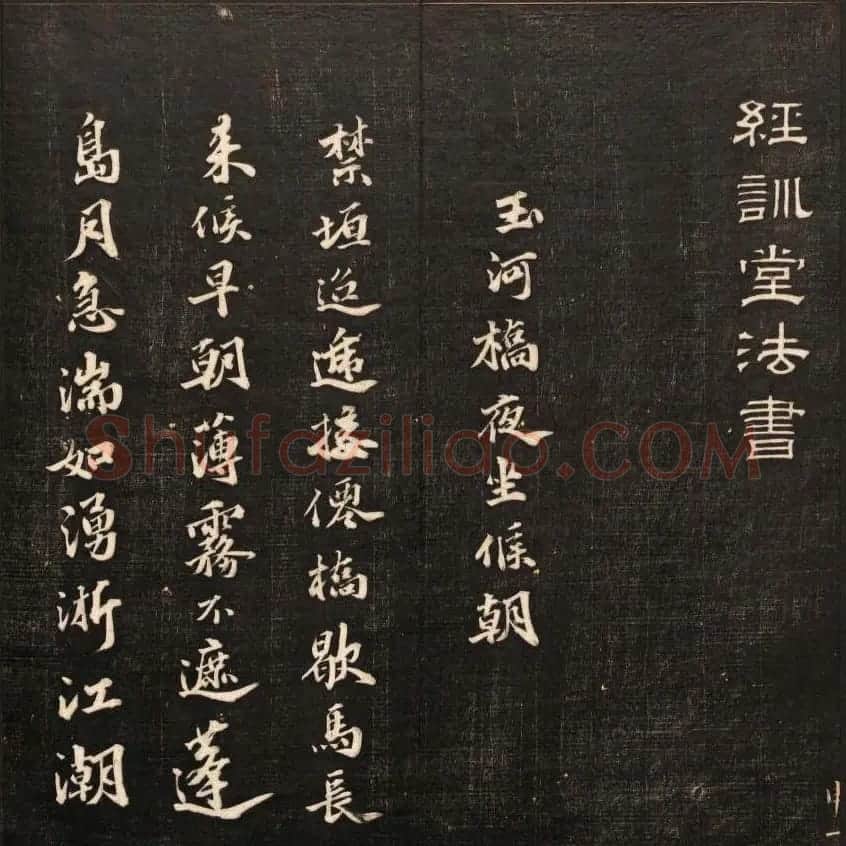 經訓堂法書
玉河橋夜坐候朝
禁垣迢遞接僊橋歇馬長
来候早朝薄霧不遮蓬
島月急湍如湧浙江潮
ShufaziliaO.COM